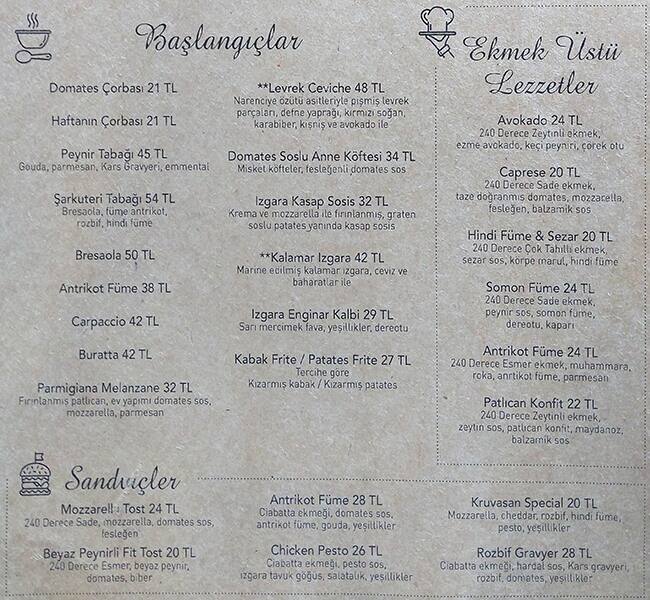 Başlangıçlar
Domates Çorbası 21 TL
Haftanın Çorbası 21 TL
Peynir Tabağı 45 TL
Gouda, parmesan, Kars Gravyeri, emmental
Şarkuteri Tabağı 54 TL
Bresaola, füme antrikot,
rozbif, hindi füme
Bresaola 50 TL
Antrikot Füme 38 TL
Carpaccio 42 TL
Buratta 42 TL
Parmigiana Melanzane 32 TL
Fırınlanmış patlıcan, ev yapımı domates sos,
mozzarella, parmesan
**Levrek Ceviche 48 TL
Narenciye özütü asitleriyle pişmiş levrek
parçaları, defne yaprağı, kırmızı soğan,
karabiber, kişniş ve avokado ile
Domates Soslu Anne Köftesi 34 TL
Misket köfteler, fesleğenli domates sos
Izgara Kasap Sosis 32 TL
Krema ve mozzarella ile fırınlanmış, graten
soslu patates yanında kasap sosis
**Kalamar Izgara 42 TL
Marine edilmiş kalamar ızgara, ceviz ve
baharatlar ile
Izgara Enginar Kalbi 29 TL
Sarı mercimek fava, yeşillikler, dereotu
Kabak Frite / Patates Frite 27 TL
Tercihe göre
Kızarmış kabak / Kızarmış patates
Ekmek Üstü
Lezzetler
Avokado 24 TL
240 Derece Zeytinli ekmek,
ezme avokado, keçi peyniri, çörek otu
Caprese 20 TL
240 Derece Sade ekmek,
taze doğranmış domates, mozzarella,
fesleğen, balzamik sos
Hindi Füme & Sezar 20 TL
240 Derece Çok Tahıllı ekmek,
sezar sos, körpe marul, hindi füme
Somon Füme 24 TL
240 Derece Sade ekmek,
peynir sos, somon füme,
dereotu, kapari
Antrikot Füme 24 TL
240 Derece Esmer ekmek, muhammara,
roka, anrtikot füme, parmesan
Patlıcan Konfit 22 TL
240 Derece Zeytinli ekmek,
zeytin sos, patlıcan konfit, maydanoz,
balzamik sos
Sandviçler
Mozzarell Tost 24 TL
240 Derece Sade, mozzarella, domates sos,
fesleğen
Beyaz Peynirli Fit Tost 20 TL
240 Derece Esmer, beyaz peynir,
domates, biber
Antrikot Füme 28 TL
Ciabatta ekmeği, domates sos,
antrikot füme, gouda, yeşillikler
Chicken Pesto 26 TL
Ciabatta ekmeği, pesto sos,
ızgara tavuk göğüs, salatalık, yeşillikler
Kruvasan Special 20 TL
Mozzarella, cheddar, rozbif, hindi füme,
pesto, yeşillikler
Rozbif Gravyer 28 TL
Ciabatta ekmeği, hardal sos, Kars gravyeri,
rozbif, domates, yeşillikler